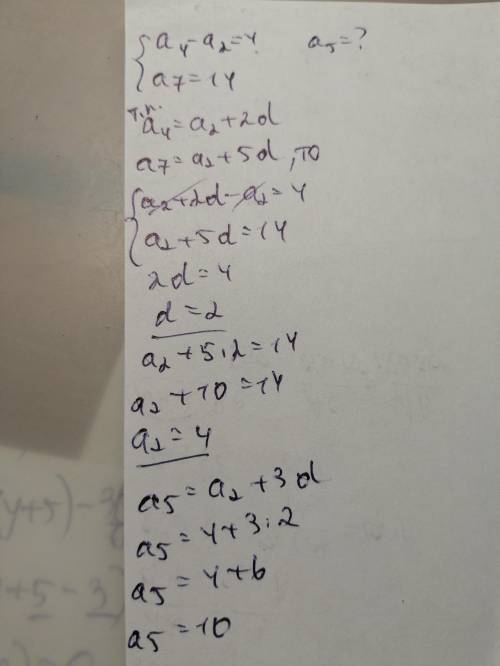 a₄-a₂=4 a₅=?
a7=14
т.к.
a₄=a₂+2d
a7=a₂+5d, то
a₂+2d-a₂=4
a₂+5d=14
2d=4
d=2
a₂+5·2=14
a₂+10=14
a₂=4
a5=a₂+3d
a5=4+3·2
a5=4+6
a5=10
y+5)-
+5-3